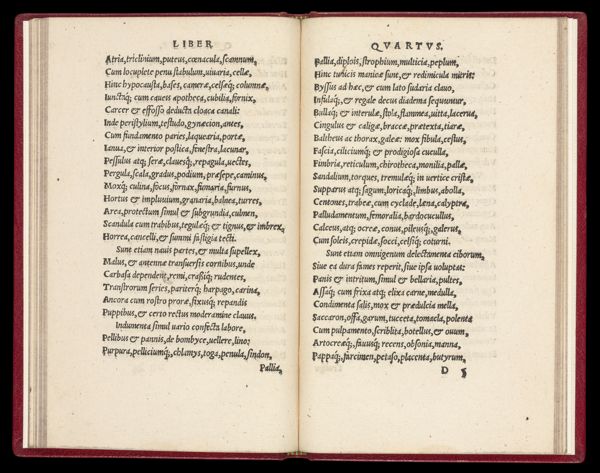 LIBER
Atria, triclinium, puteus, cœnacula, scamnum,
Cum locuplete penu stabulum, uiuaria, cellæ,
Hinc hypocausta, bases, cameræ, celsæq; columnæ,
Iunctaq; cum caueis apotheca, cubilia, fornix,
Carcer & effosso deducta cloaca canali:
Inde peristylium, testudo, gynæcion, antes,
Cum fundamento paries, laquearia, portæ,
Ianua, & interior postica, fenestra, lacunar,
Pessulus atq; seræ, clauesq;, repagula, uectes,
Pergula, scala, gradus, podium, præsepe, caminus,
Moxq; culina, focus, fornax, fumaria, furnus,
Hortus & impluuium, granaria, balnea, turres,
Area, protectum simul & subgrundia, culmen,
Scandula cum trabibus, tegulæq; & tignus, & imbrex,
Horrea, cancelli, & summi fastigia tecti.
Sunt etiam nauis partes, & multa supellex,
Malus, & antennæ transuersis cornibus, unde
Carbasa dependent, remi, crassiq; rudentes,
Transtrorum series, pariterq; harpago, carina,
Ancora cum rostro prora, fixusq; repandis
Puppibus, & certo rectus moderamine clauus.
Indumenta simul uario confecta labore,
Pellibus & pannis, de bombyce, uellere, lino:
Purpura, pelliciumq;, chlamys, toga, penula, sindon,
Pallia,
QVARTVS.
Pallia, diplois, strophium, multicia, peplum,
Hinc tunicis manicæ sunt, & redimicula mitris:
Byssus ad hæc, & cum lato sudaria clauo,
Infulaq;, & regale decus diadema sequuntur,
Bullaq; & interulæ, stola, flammea, uitta, lacerna,
Cingulus & caligæ, braccæ, prætexta, tiaræ,
Baltheus ac thorax, galeæ: mox fibula, cestus,
Fascia, ciliciumq; & prodigiosa cuculla,
Fimbria, reticulum, chirotheca, monilia, pallæ,
Sandalium, torques, tremulæq; in uertice cristæ,
Supparus atq; sagum, loricaq;, limbus, abolla,
Centones, trabeæ, cum cyclade, læna, calyptra,
Palludamentum, femoralia, bardocucullus,
Calceus, atq; ocreæ, conus, pileusq;, galerus,
Cum soleis, crepidæ, socci, celsiq; coturni.
Sunt etiam omnigenum delectamenta ciborum,
Siue ea dura fames reperit, siue ipsa uoluptas:
Panis & intritum, simul & bellaria, pultes,
Assaq; cum frixa atq; elixa carne, medulla,
Condimenta salis, mox & prædulcia mella,
Saccaron, offa, garum, tuceta, tomacla, polenta
Cum pulpamento, scriblita, botellus, & ouum,
Artocreæq;, fauusq; recens, obsonia, manna,
Pappaq;, farcimen, petaso, placenta, butyrum,
D 5